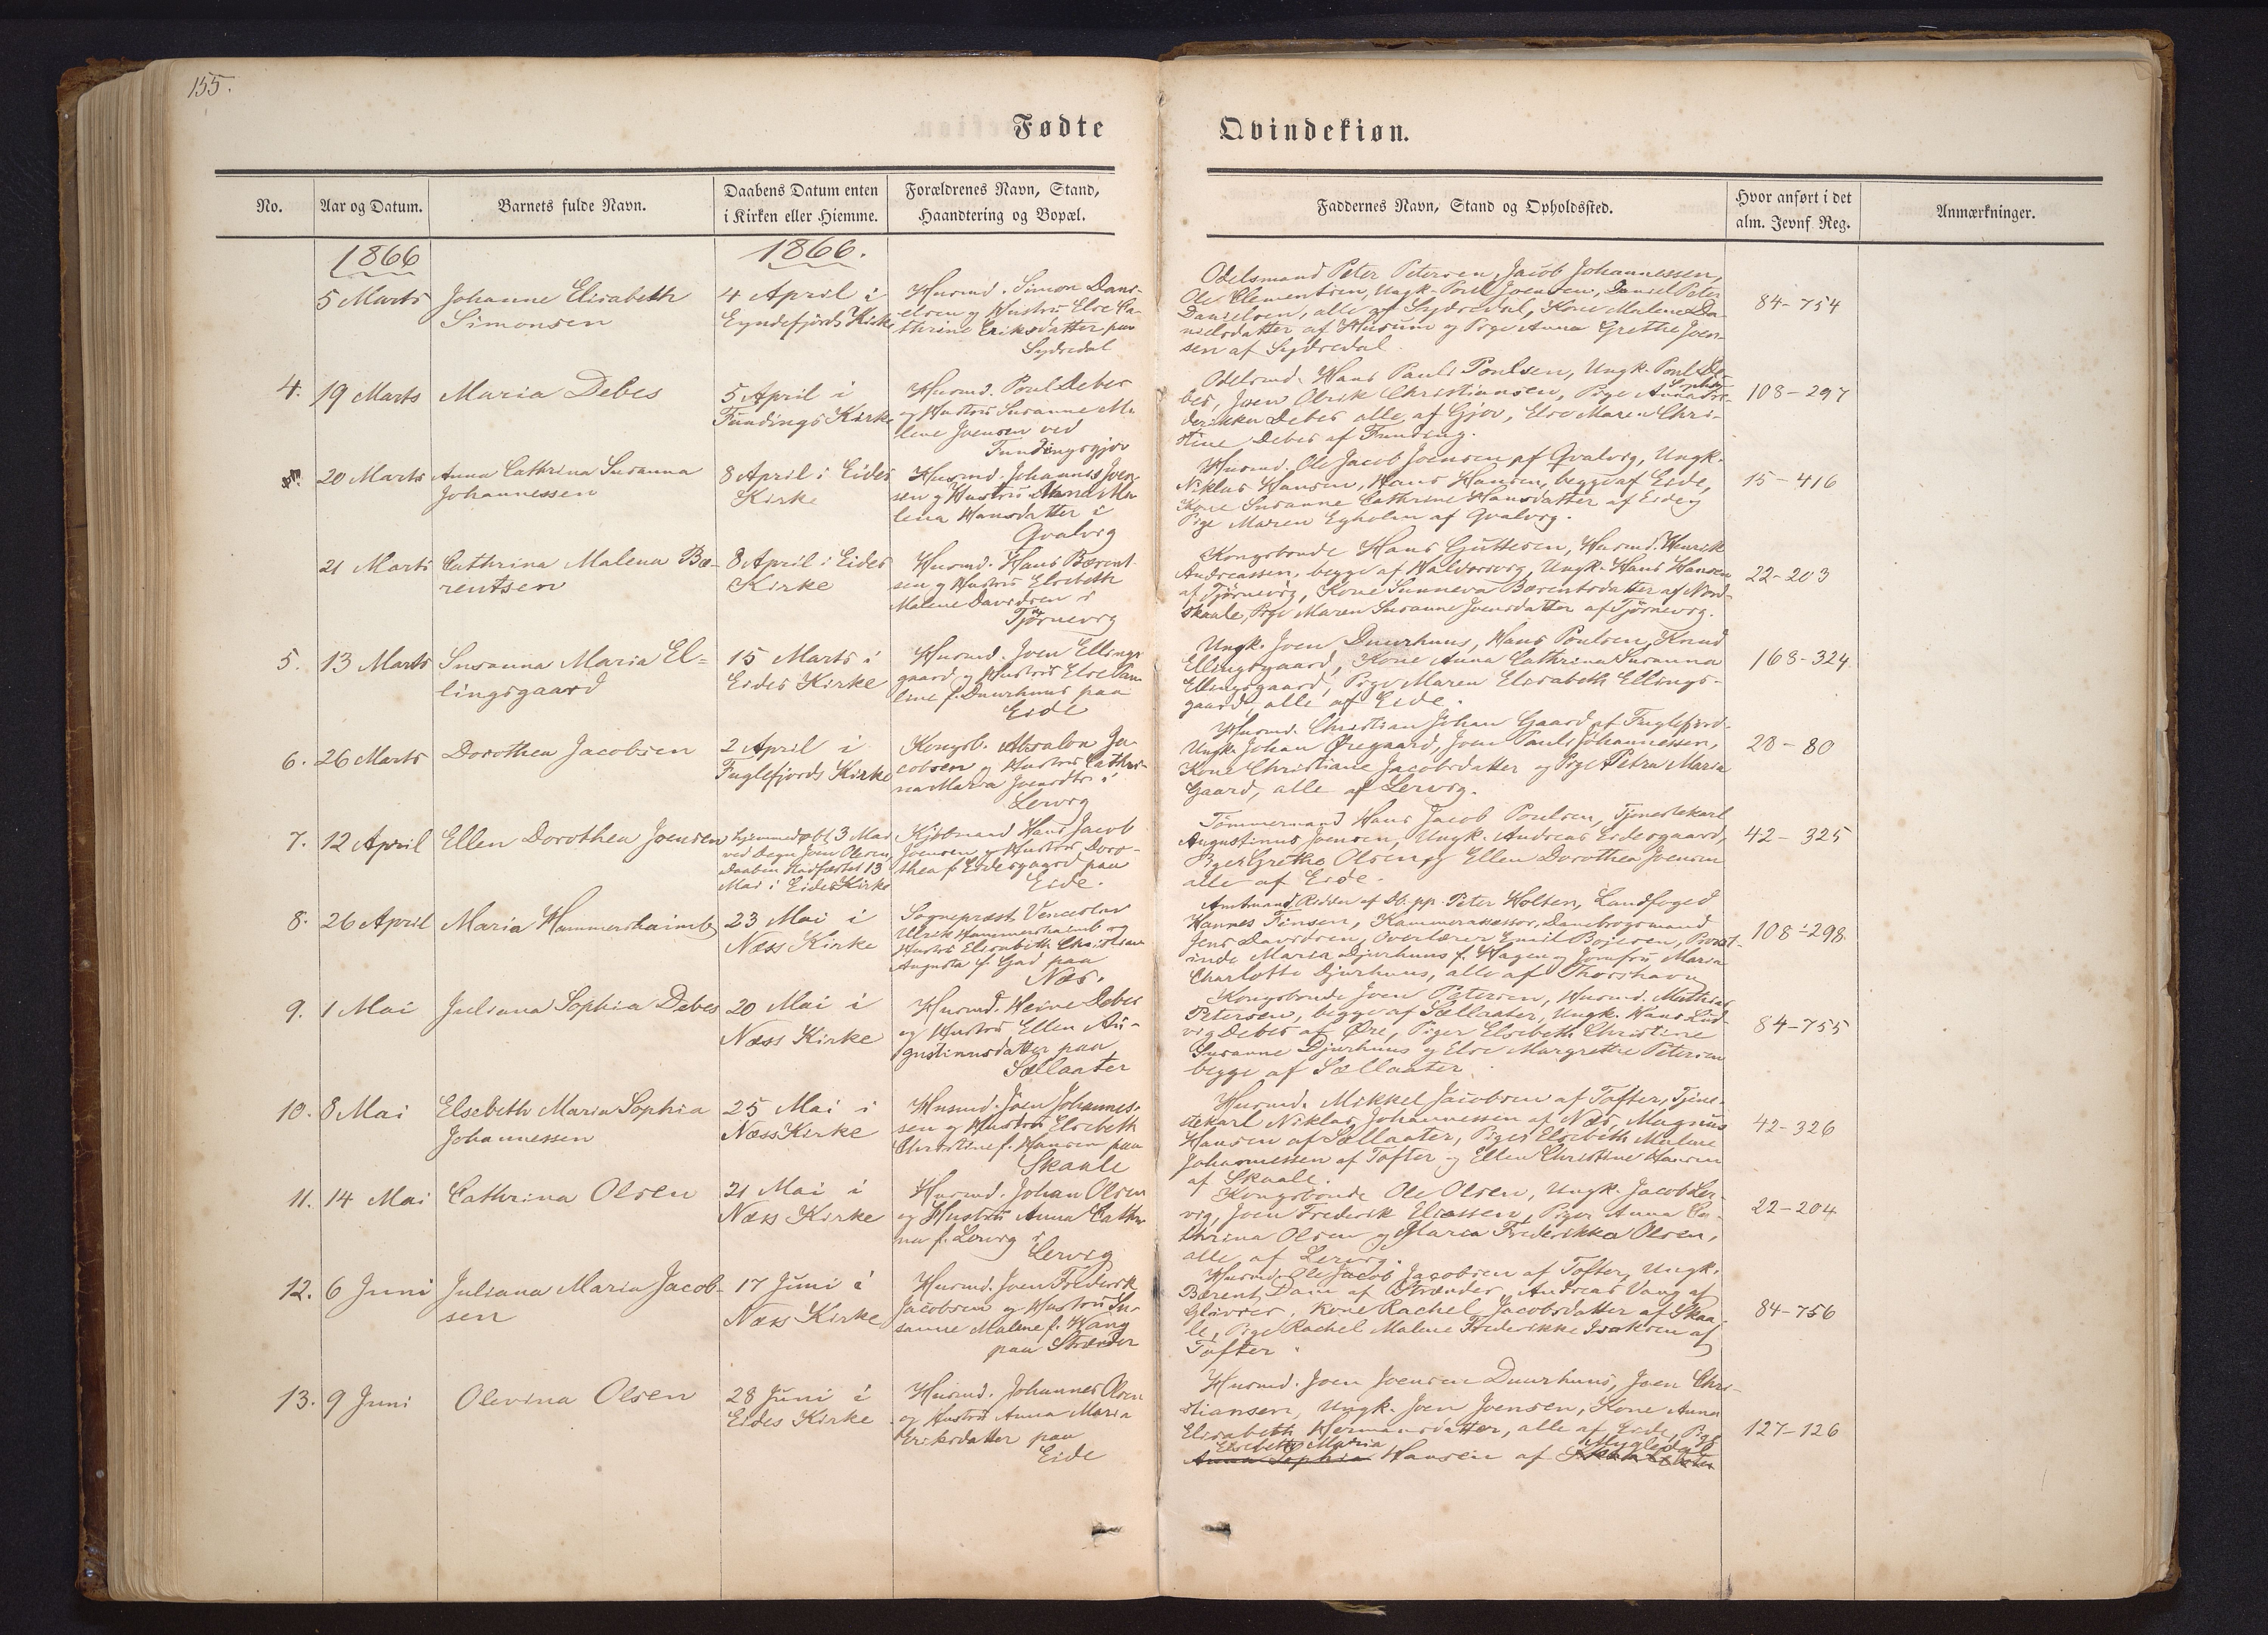 155.
Fødte
Qvindekiøn.
No.
Aar og Datum.
Barnets fulde Navn.
Daabens Datum enten
i Kirken eller Hiemme.
Forældrenes Navn, Stand,
Haandtering og Bopæl.
Faddernes Navn, Stand og Opholdssted.
Hvor anført i det
alm. Jevnf. Reg.
Anmærkninger.
1866
1866.
5 Marts
Johanne Elisabeth
Simonsen
4 April i
Eyndefjords Kirke
Husmd. Simon Dani-
elsen og Hustru Else Ca-
thrine Eriksdatter paa
Sydredal
Odelsmand Peter Petersen, Jacob Johannessen,
Ole Clementsen, Ungk. Poul Joensen, Daniel Peter
Danielsen, alle af Sydredal, Kone Malene Da-
nielsdatter af Husum og Pige Anna Grethe Joen-
sen af Sydredal
84-754
4.
19 Marts
Maria Debes
5 April i
Fundings Kirke
Husmd. Poul Debes
og Hustru Susanne Ma-
lene Joensen ved
Fundingsgjov
Odelsmd. Hans Pauli Poulsen, Ungk. Poul De-
bes, Joen Olrik Christiansen, Pige Anna Sophie Fre-
derikka Debes alle af Gjov, Else Maren Chri-
stine Debes af Funding.
108-297
20 Marts
Anna Cathrina Susanna
Johannessen
8 April i Eides
Kirke
Husmd. Johannes Joen-
sen og Hustru Anna Ma-
lena Hansdatter i
Qvalvig
Husmd. Ole Jacob Joensen af Qvalvig, Ungk.
Niklas Hansen, Hans Hansen, begge af Eide,
Kone Susanne Cathrine Hansdatter af Eide og
Pige Maren Egholm af Qvalvig.
15-416
21 Marts
Cathrina Malena Bæ-
rentsen
8 April i Eides
Kirke
Husmd. Hans Bærent-
sen og Hustru Elsebeth
Malene Davidsen i
Tjørnevig
Kongsbonde Hans Guttesen, Husmd. Henrik
Andreassen, begge af Haldorsvig, Ungk. Hans Hansen
af Tjørnevig, Kone Sunneva Bærentsdatter af Nord-
skaale, Pige Maren Susanne Joensdatter af Tjørnevig.
22-203
5.
13 Marts
Susanna Maria El-
lingsgaard
15 Marts i
Eides Kirke
Husmd. Joen Ellings-
gaard og Hustru Else Pau-
line f. Duurhuus paa
Eide
Ungk. Joen Duurhuus, Hans Poulsen, Knud
Ellingsgaard, Kone Anna Cathrina Susanna
Ellingsgaard, Pige Maren Elisabeth Ellings-
gaard, alle af Eide.
168-324
6.
26 Marts
Dorothea Jacobsen
2 April i
Fuglefjords Kirke
Kongsb. Absalon Ja-
cobsen og Hustru Cathri-
na Maria Joensdtr. i
Lervig
Husmd. Christian Johan Gaard af Fuglefjord.
Ungk. Johan Øregaard, Joen Pauli Johannessen,
Kone Christiane Jacobsdatter og Pige Petra Maria
Gaard, alle af Lervig.
28-80
7.
12 April
Ellen Dorothea Joensen
hjemmedøbt 3 Mai
ved Degn Joen Olesen,
Daaben stadfæstet 13
Mai i Eides Kirke
Kjøbmand Hans Jacob
Joensen og Hustru Doro-
thea f. Eidesgaard paa
Eide.
Tømmermand Hans Jacob Poulsen, Tjenestekarl
Augustinus Joensen, Ungk. Andreas Eidesgaard,
Piger Grethe Olsen og Ellen Dorothea Joensen
alle af Eide.
42-325
8.
26 April
Maria Hammershaimb
23 Mai i
Næss Kirke
Sognepræst Venceslav
Ulrik Hammershaimb og
Hustru Elisabeth Christiane
Augusta f. Gad paa
Næs.
Amtmand, Ridder af Db. pp. Peter Holten, Landfoged
Hannes Finsen, Kammerassessor, Danebrogsmand
Jens Davidsen, Overlærer Emil Bojesen, Provst-
inde Maria Djurhuus f. Hagen og Jomfru Maria
Charlotte Djurhuus, alle af Thorshavn
108-298.
9.
1 Mai
Juliana Sophia Debes
20 Mai i
Næss Kirke
Husmd. Heine Debes
og Hustru Ellen Au-
gustinusdatter paa
Sællaater
Kongsbonde Joen Petersen, Husmd. Matthias
Petersen, begge af Sællaater, Ungk. Hans Lud-
vig Debes af Øre, Piger Elsebeth Christine
Susanne Djurhuus og Else Margrethe Petersen
begge af Sællaater
84-755
10.
8 Mai
Elsebeth Maria Sophia
Johannessen
25 Mai i
Næss Kirke
Husmd. Joen Johannes-
sen og Hustru Elsebeth
Christine f. Hansen paa
Skaale
Husmd. Mikkel Jacobsen af Tofter, Tjene-
stekarl Niklas Johannessen af Næs, Magnus
Hansen af Sællaater, Piger Elsebeth Malene
Johannessen af Tofter og Ellen Christine Hansen
af Skaale.
42-326
11.
14 Mai
Cathrina Olsen
21 Mai i
Næss Kirke
Husmd. Johan Olsen
og Hustru Anna Cathri-
na f. Lervig i
Lervig
Kongsbonde Ole Olsen, Ungk. Jacob Ler-
vig, Joen Frederik Eliassen, Piger Anna Ca-
thrina Olsen og Maria Frederikka Olsen,
alle af Lervig.
22-204
12.
6 Juni
Juliana Maria Jacob-
sen
17 Juni i
Næss Kirke
Husmd. Joen Frederik
Jacobsen og Hustru Su-
sanne Malene f. Wang
paa Strænder
Husmd. Ole Jacob Jacobsen af Tofter, Ungk.
Bærent Dam af Strænder, Andreas Vang af
Glivrer, Kone Rachel Jacobsdatter af Skaa-
le, Pige Rachel Malene Frederikke Isaksen af
Tofter.
84-756
13.
9 Juni
Olevina Olsen
28 Juni i
Eides Kirke
Husmd. Johannes Olsen
og Hustru Anna Maria
Eriksdatter paa
Eide
Husmd. Joen Joensen Duurhuus, Joen Chri-
stiansen, Ungk. Joen Joensen, Kone Anna
Elisabeth Hermansdatter, alle af Eide, Pige
Elsebeth Maria
Anna Sophia Hansen af
127-126